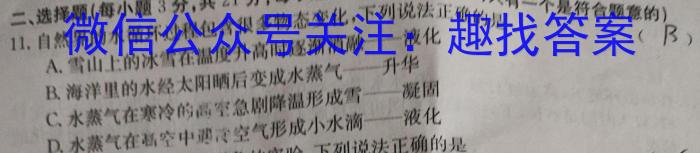 二、选择题(每小题3分,共21分,
一个是符合题意的)
微信公众号关注:趣找答案
11.自然
多物态变化,下列说法正确的是
( B )
A.雪山上的冰雪在温度升高时逐渐
——液化
B.海洋里的水经太阳晒后变成水蒸气——升华
C.水蒸气在寒冷的高空急剧降温形成雪——凝固
D.水蒸气在高空中遇冷空气形成小水滴——液化
实验,下列说法正确的是